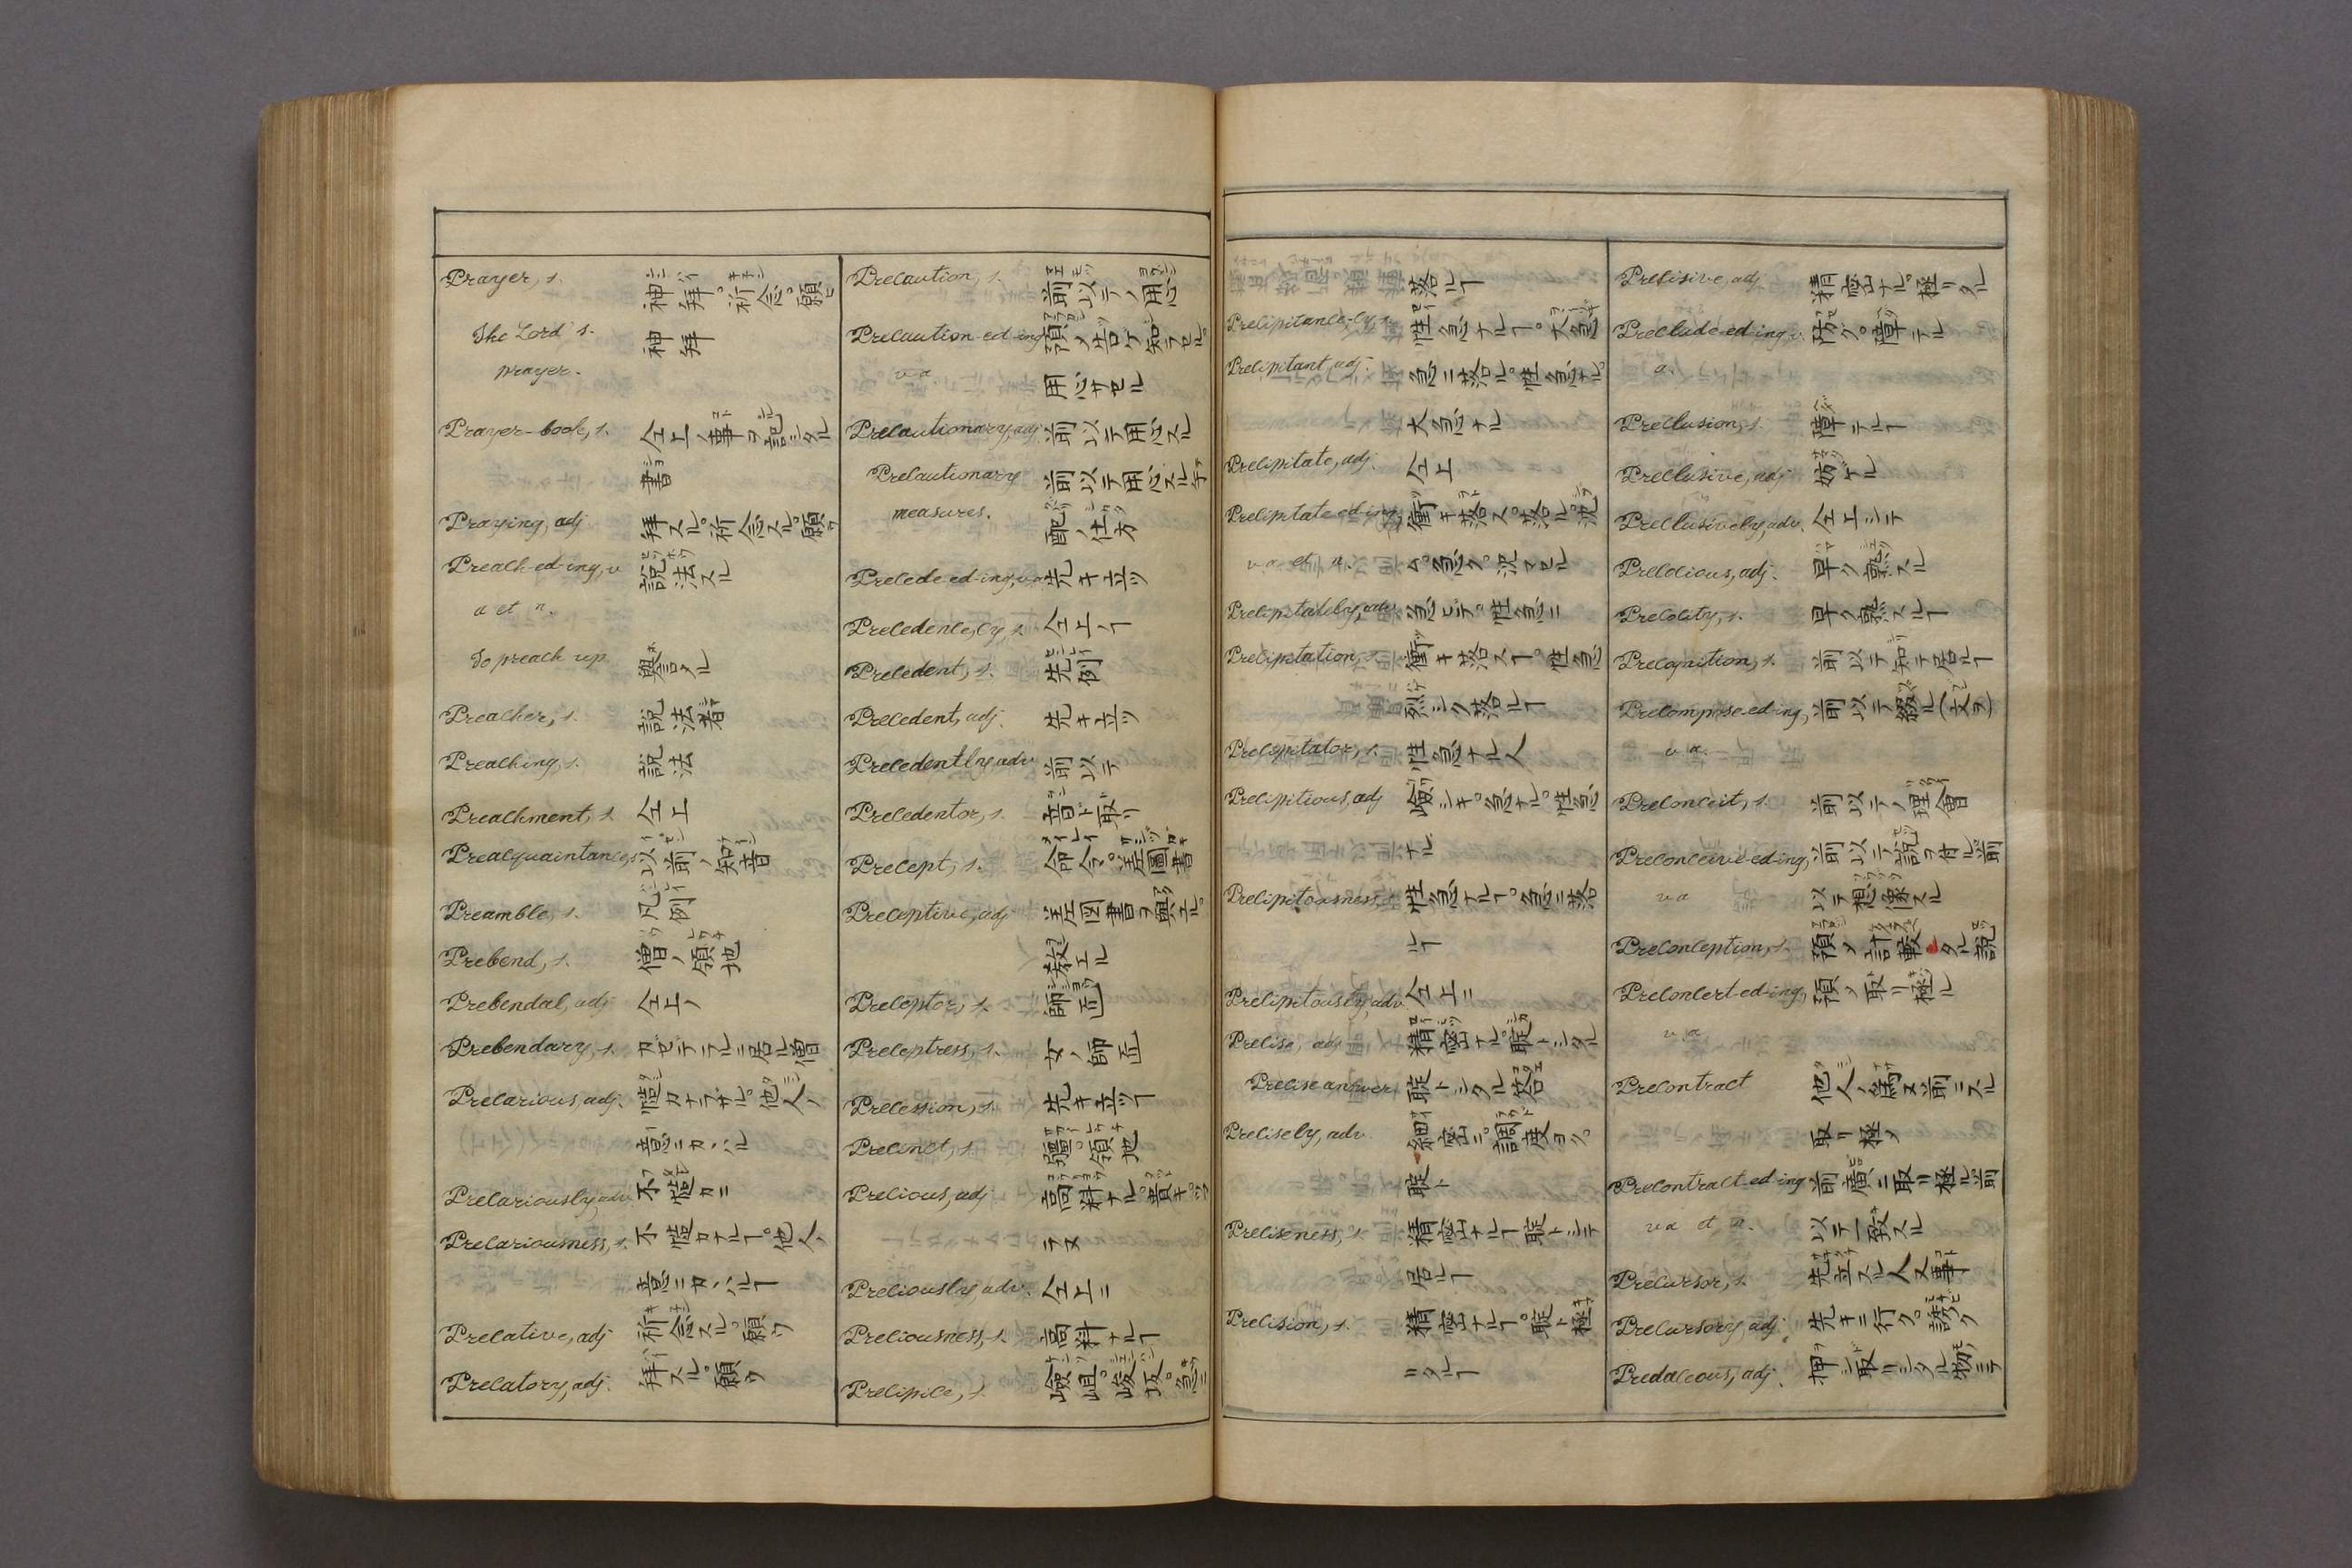 Prayer, s. 神拜。祈念。願ヒ
The Lord's 神拜
prayer.
Prayer-book, s. 仝上ノ事ヲ記シタル
書
Praying, adj. 拜スル。祈念スル。願フ
Preach-ed-ing, v 説法スル
a et n.
To preach up. 譽言タル
Preacher, s. 説法者
Preaching, s. 説法
Preachment, s. 仝上
Preacquaintance, s. 以前ノ知音
Preamble, s. 凡例
Prebend, s. 僧ノ領地
Prebendal, adj. 仝上ノ
Prebendary, s. カセデラルニ居ル僧
Precarious, adj. 慥カナラザル。他人ノ
意ニカヽル
Precariously, adv. 不慥カニ
Precariousness, s. 不慥カナルヿ。他人ノ
意ニカヽルヿ
Precative, adj. 祈念スル。願フ
Precatory, adj. 拜スル。願フ
Precaution, s. 前以テノ用心
Precaution-ed-ing 預メ告ケ知ラセル。
v a. 用心サセル
Precautionary, adj. 前以テ用心スル
Precautionary 前以テ用心スル手
measures. 配ノ仕方
Precede-ed-ing, v a 先キ立ツ
Precedence, cy, s. 仝上ノヿ
Precedent, s. 先例
Precedent, adj. 先キ立ツ
Precedently, adv. 前以テ
Precedentor, s. 音ド取リ
Precept, s. 命令。差圖書
Preceptive, adj. 差図書ヲ與エル。
教エル
Preceptor, s. 師匠
Preceptress, s. 女ノ師匠
Precession, s. 先キ立ツヿ
Precinct, s. 疆。領地
Precious, adj. 高料ナル。貴キ。ツ
ラヌ
Preciously, adv. 仝上ニ
Preciousness, s. 高料ナルヿ
Precipice, s. 嶮岨。峻坂。急ニ
落ルヿ
Precipitance-cy, s. 性急ナルヿ。大急
Precipitant, adj. 急ニ落ル。性急ナル。
大急ナル
Precipitate, adj. 仝上
Precipitate-ed-ing 衝キ落ス。落ル。沈
v a et n. ム。急ク。沈マセル
Precipitately, adv. 急ヒデ。性急ニ
Precipitation, s. 衝キ落スヿ。性急
烈シク落ルヿ
Precipitator, s. 性急ナル人
Precipitious, adj 嶮シキ。急ナル。性急
ナル
Precipitousness, s. 性急ナルヿ。急ニ落
ルヿ
Precipitously, adv. 仝上ニ
Precise, adj 精密ナル。聢トシタル
Precise answer 聢トシタル答
Precisely, adv. 細密ニ。調度ヨク。
聢ト
Preciseness, s. 精密ナルヿ聢トシテ
居ルヿ
Precision, s. 精密ナルヿ。聢ト極
リタルヿ
Precisive, adj. 精密ナル。極リタル
Preclude-ed-ing, v. 防ク。障テル
a.
Preclusion, s. 障テルヿ
Preclusive, adj. 妨ケル
Preclusively, adv. 仝上シテ
Precocious, adj. 早ク熟スル
Precocity, s. 早ク熟スルヿ
Precognition, s. 前以テ知テ居ルヿ
Precompose-ed-ing, 前以テ綴ル(文ヲ)
v a.
Preconceit, s. 前以テノ理會
Preconceive-ed-ing, 前以テ説ヲ有ル前
v a 以テ想像スル
Preconception, s. 預メ計較シタル説
Preconcert-ed-ing, 預メ取リ極ル
v a.
Precontract 他人ノ綺ヌ前ニスル
取リ極メ
Precontract-ed-ing 前廣ニ取リ極ル前
v a et n. 以テ一致スル
Precursor, s. 先立スル人又事
Precursory, adj. 先キニ行ク。誘ク
Predaceous, adj. 押シ取リシタル物ニテ